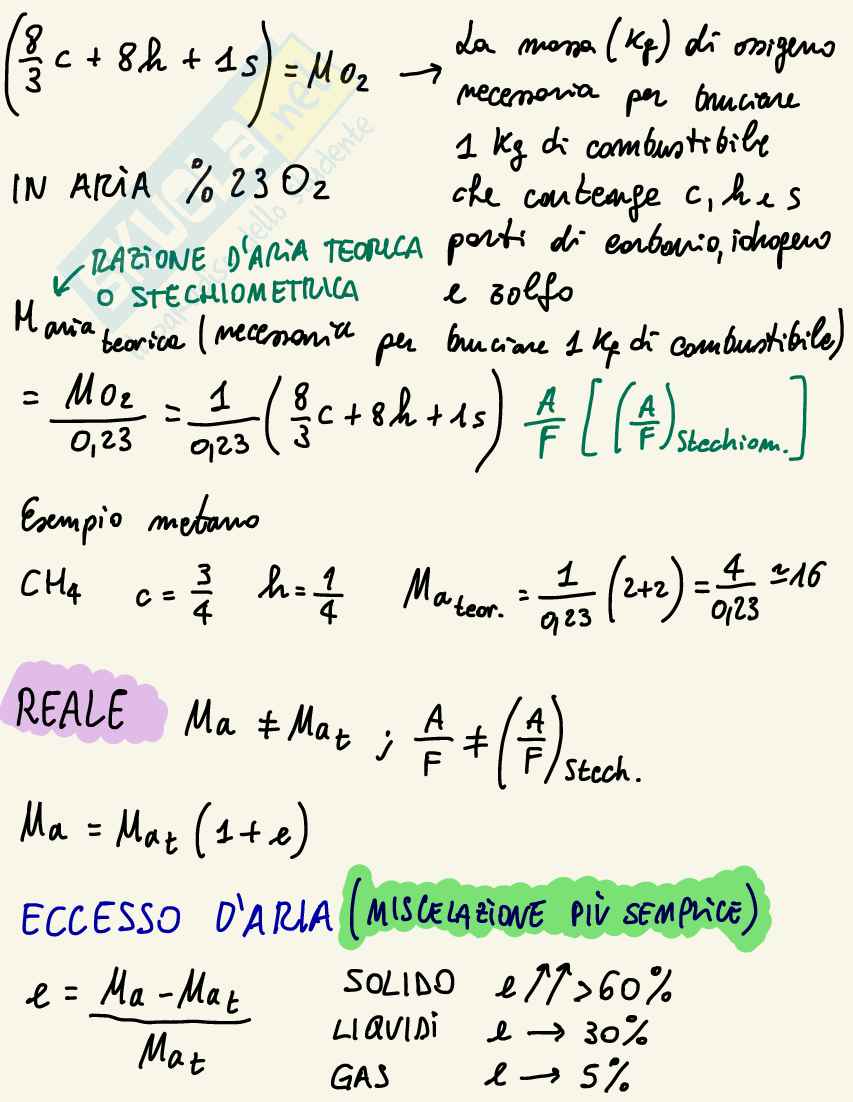 (8/3 c + 8h + 1s) = MO₂ → La massa (Kg) di ossigeno
necessaria per bruciare
1 Kg di combustibile
che contenga c, h e s
parti di carbonio, idrogeno
e zolfo
IN ARIA % 23 O₂
RAZIONE D'ARIA TEORICA
O STECHIOMETRICA
M aria teorica (necessaria per bruciare 1 Kg di combustibile)
= MO₂/0,23 = 1/0,23 (8/3 c + 8h + 1s) A/F [(A/F) Stechiom.]
Esempio metano
CH₄ c = 3/4 h = 1/4 Ma teor. = 1/0,23 (2+2) = 4/0,23 ≃ 16
REALE Ma ≠ Mat ; A/F ≠ (A/F) Stech.
Ma = Mat (1 + e)
ECCESSO D'ARIA (MISCELAZIONE PIÙ SEMPLICE)
e = Ma - Mat / Mat
SOLIDO e ↑↑ > 60%
LIQUIDI e → 30%
GAS e → 5%
SKUOLA.net
il paradiso dello studente